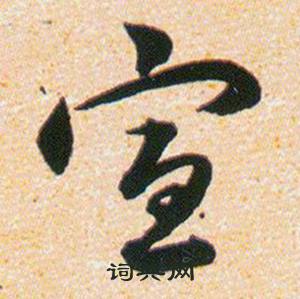 宣
词典网